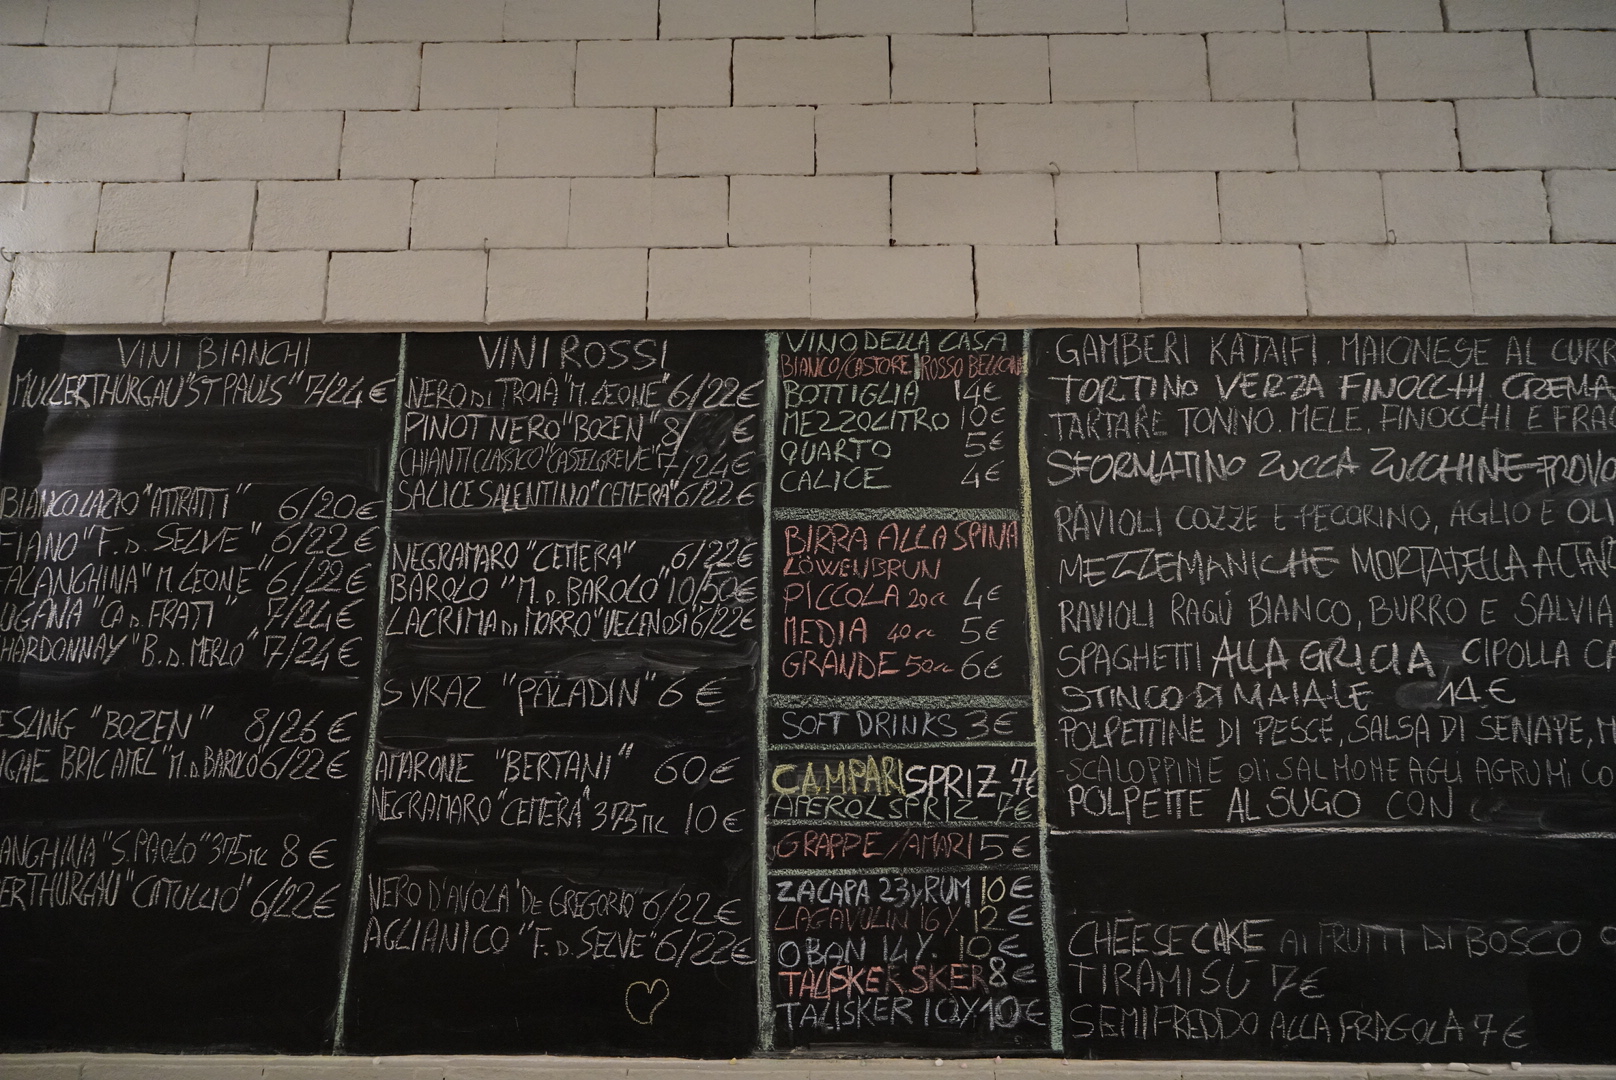 VINI BIANCHI
MULLERTHURGAU "ST PAULS" 7/24€
BIANCO LAZIO "ATTRATTI" 6/20€
FIANO "F. D. SELVE" 6/22€
FALANGHINA "M. LEONE" 6/22€
UGANA "CA D. FRATI" 7/24€
HARDONNAY "B. D. MERLO" 7/24€
ESLING "BOZEN" 8/26€
6/22€
ANGHINA "S. PAOLO" 375ML 8€
ERTHURGAU "CATULLIO" 6/22€
VINI ROSSI
NERO DI TROIA "M. LEONE" 6/22€
PINOT NERO "BOZEN" 8/ €
CHIANTI CLASSICO "CASTELGREVE" 7/24€
SALICE SALENTINO "CEMERA" 6/22€
NEGRAMARO "CEMERA" 6/22€
BAROLO "M. D. BAROLO" 10/50€
LACRIMA DI MORRO "VELENOSI" 6/22€
SYRAZ "PALADIN" 6€
AMARONE "BERTANI" 60€
NEGRAMARO "CEMERA" 375ML 10€
NERO D'AVOLA "DE GREGORIO" 6/22€
AGLIANICO "F. D. SELVE" 6/22€
VINO DELLA CASA
BIANCO/CASTORE ROSSO BELLONE
BOTTIGLIA 14€
MEZZOLITRO 10€
QUARTO 5€
CALICE 4€
BIRRA ALLA SPINA
LÖWENBRUN
PICCOLA 20cc 4€
MEDIA 40cc 5€
GRANDE 50cc 6€
SOFT DRINKS 3€
CAMPARI SPRIZ 7€
APEROL SPRIZ 7€
GRAPPE/AMARI 5€
ZACAPA 23y RUM 10€
LAGAVULIN 16Y. 12€
OBAN 14Y. 10€
TALISKER SKER 8€
TALISKER 10Y 10€
GAMBERI KATAIFI. MAIONESE AL CURR
TORTINO VERZA FINOCCHI CREMA
TARTARE TONNO. MELE, FINOCCHI E FRAG
SFORMATINO ZUCCA ZUCCHINE PROVO
RAVIOLI COZZE E PECORINO, AGLIO E OLI
MEZZEMANICHE MORTADELLA
RAVIOLI RAGÚ BIANCO, BURRO E SALVIA
SPAGHETTI ALLA GRICIA CIPOLLA CA
STINCO DI MAIALE 14€
POLPETTINE DI PESCE, SALSA DI SENAPE, M
-SCALOPPINE DI SALMONE AGLI AGRUMI CO
POLPETTE AL SUGO CON
CHEESECAKE AI FRUTTI DI BOSCO
TIRAMISÙ 7€
SEMIFREDDO ALLA FRAGOLA 7€